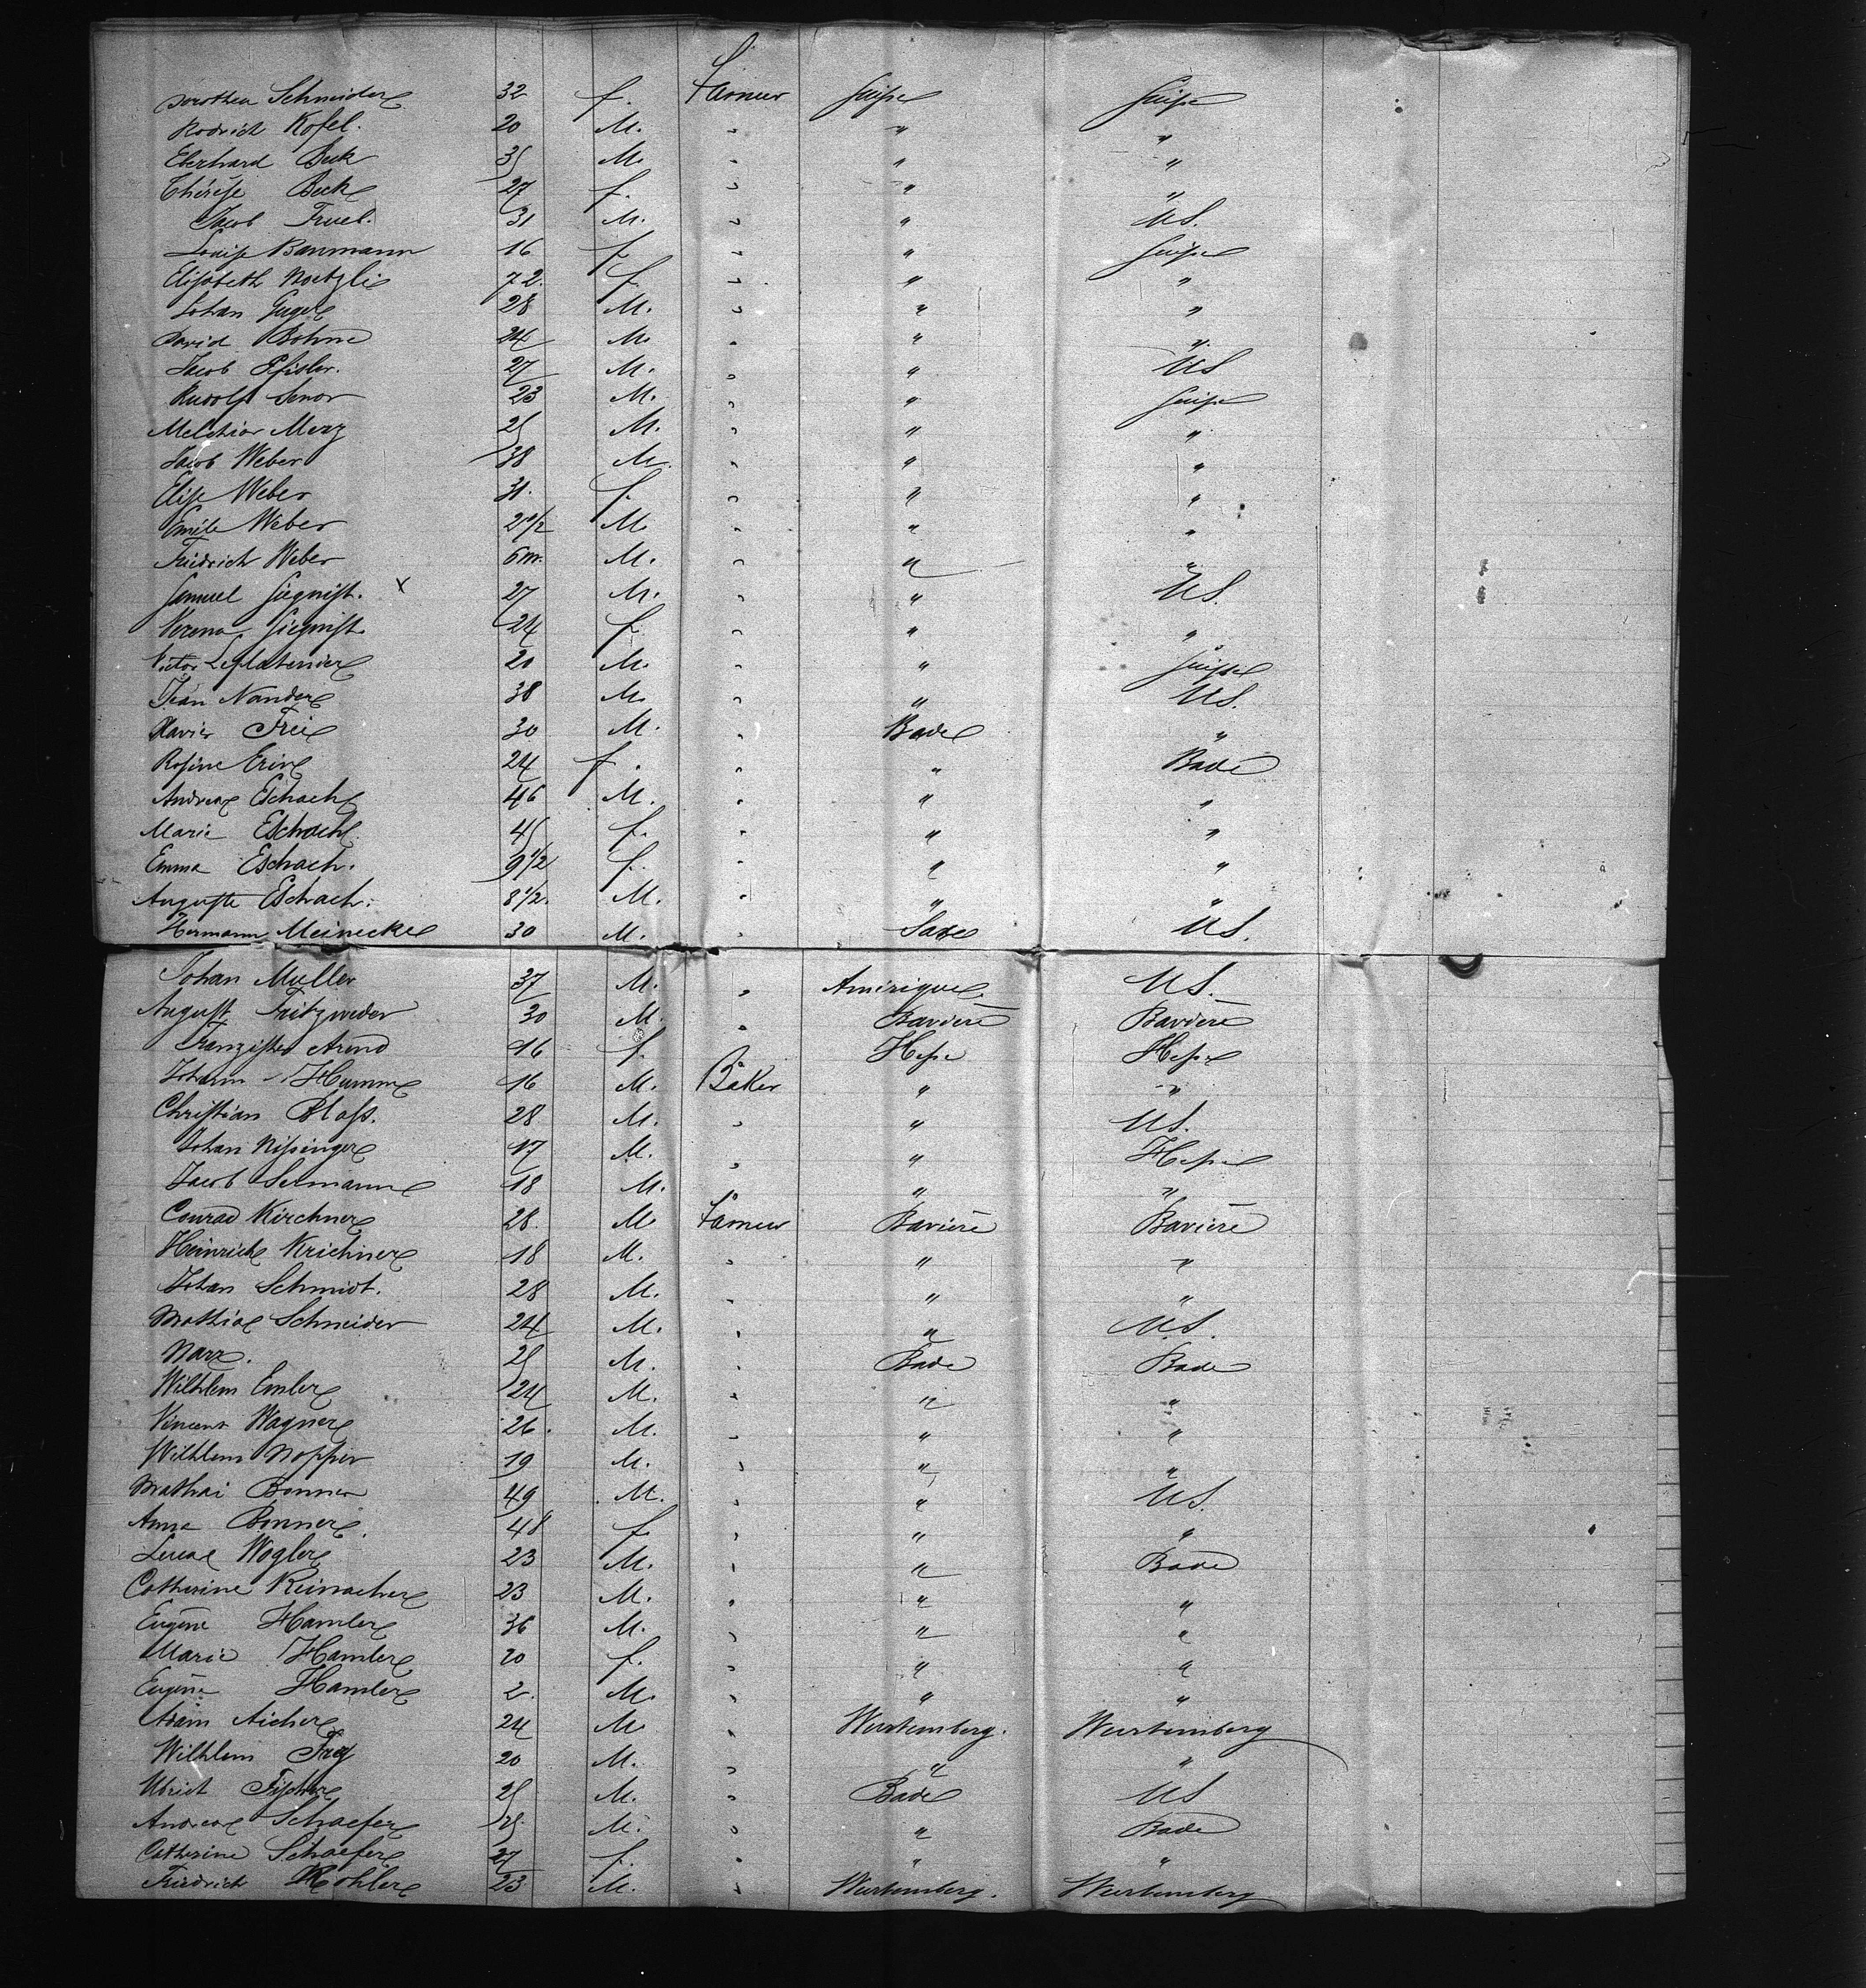 Dorothea Schneider 32 f. Farmer Suisse Suisse
Rodrich Kofel. 20 M. " " "
Eberhard Beck 35 M. " " "
Thérèse Beck 27 f. " " "
Jacob Truel. 31 M. " " U.S.
Louise Baumann 16 f. " " Suisse
Elisabeth Noetzli 72. f. " " "
Johan Guger 28 M. " " "
David Bohne 24 M. " " "
Jacob Pfister. 27 M. " " U.S
Rudolf Senor 23 M. " " Suisse
Melchior Merz 25 M. " " "
Jacob Weber 38 M. " " "
Elise Weber 31. f. " " "
Emile Weber 2 1/2 M. " " "
Friedrich Weber 6 m. M. " " "
Samuel Siegrist. x 27 M. " " U.S.
Verena Siegrist 24 f. " " "
Victor Leplatenier 20 M. " " Suisse
Jean Nander 38 M. " " U.S.
Xavier Frei 30 M. " Bade "
Rosine Erin 24 f. " " Bade
Andreas Eschach 46 M. " " "
Marie Eschach 45 f. " " "
Emma Eschach. 9 1/2 f. " " "
Auguste Eschach. 8 1/2. M. " " "
Hermann Meinecke 30 M. " Saxe U.S.
Johan Muller 37 M. " Amérique U.S.
August Fritzweder 30 M. " Bavière Bavière
Franziska Arend 16 f. Hesse Hesse
Johann Humm 16 M. Baker " "
Christian Bloss. 28 M. " " U.S.
Johan Nissinger 17 M. " " Hesse
Jacob Sermann 18 M. " " "
Conrad Kirchner 28. M Farmer Bavière Bavière
Heinrich Krichner 18 M. " " "
Johan Schmidt. 28 M. " " "
Mathias Schneider 24 M. " " U.S.
Narr. 25 M. " Bade Bade
Wilhlem Emler 24 M. " " "
Vincent Wagner 26. M. " " "
Wilhlem Nopper 19 M. " " "
Mathai Bonner 49 M. " " U.S.
Anna Bonner. 48 f. " " "
Lucas Wogler 23 M. " " Bade
Catherine Reinacher 23 M. " " "
Eugène Hamler 36 M. " " "
Marie Hamler 20 f. " " "
Eugène Hamler 2. M. " " "
Adam Aicher 24 M. " Wurtemberg. Wurtemberg
Wilhlem Frey 20 M. " " "
Ulrich Fischer 25 M. " Bade U.S
Andreas Schaefer 25. M. " " Bade
Catherine Schaefer 27 f. " " "
Friedrich Kohler 23 M. " Wurtemberg. Wurtemberg